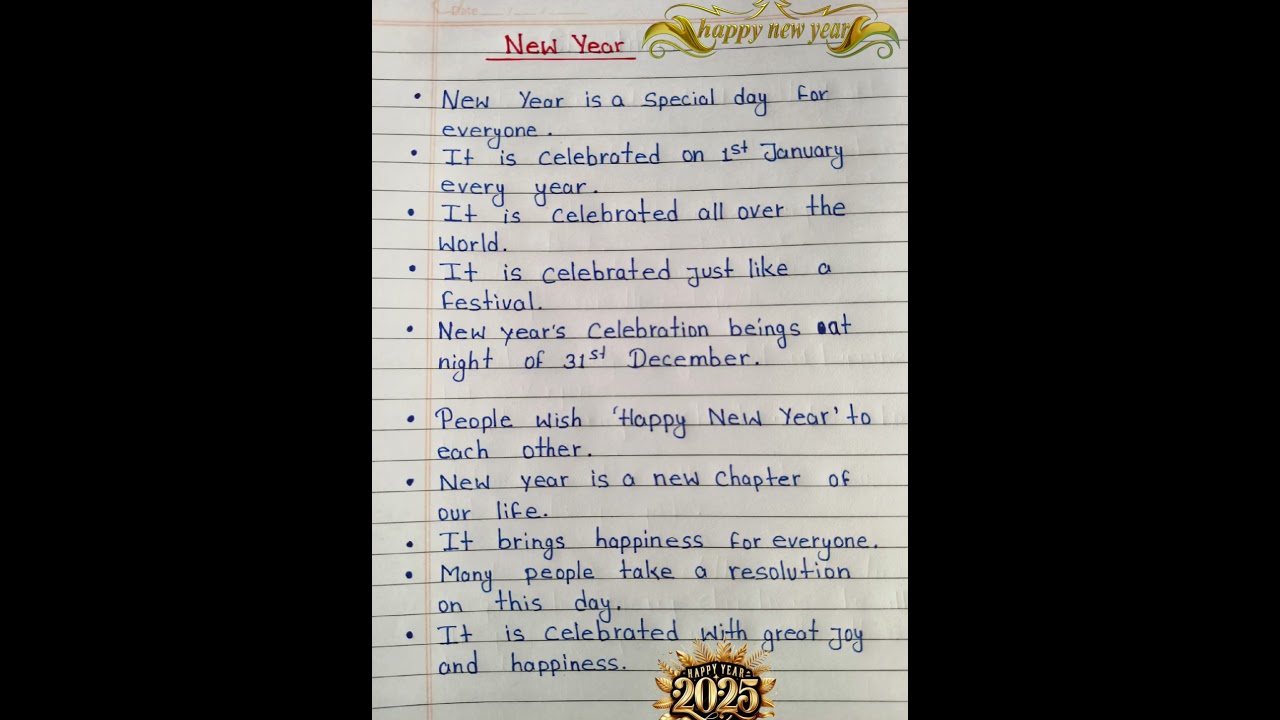 Date
New Year
happy new year
• New Year is a special day for
everyone.
• It is celebrated on 1st January
every year.
• It is celebrated all over the
world.
• It is celebrated just like a
festival.
• New year's celebration beings at
night of 31st December.
• People wish 'Happy New Year' to
each other.
• New year is a new chapter of
our life.
• It brings happiness for everyone.
• Many people take a resolution
on this day.
• It is celebrated with great joy
and happiness.
HAPPY YEAR
2025